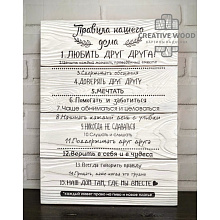 CREATIVE WOOD
Правила нашего
дома
1. ЛЮБИТЬ ДРУГ ДРУГА!
2. Ценить каждый момент, проведённый вместе
3. Сдерживать обещания
4. ДОВЕРЯТЬ ДРУГ ДРУГУ
5. МЕЧТАТЬ
6. Помогать и заботиться
7. Чаще обниматься и целоваться
8. Начинать каждый день с улыбки
9. НИКОГДА НЕ СДАВАТЬСЯ
10. Слушать и слышать
11. Поддерживать друг друга
12. Верить в себя и в чудеса
13. Всегда говорить правду
15. НАШ ДОМ ТАМ, ГДЕ МЫ ВМЕСТЕ